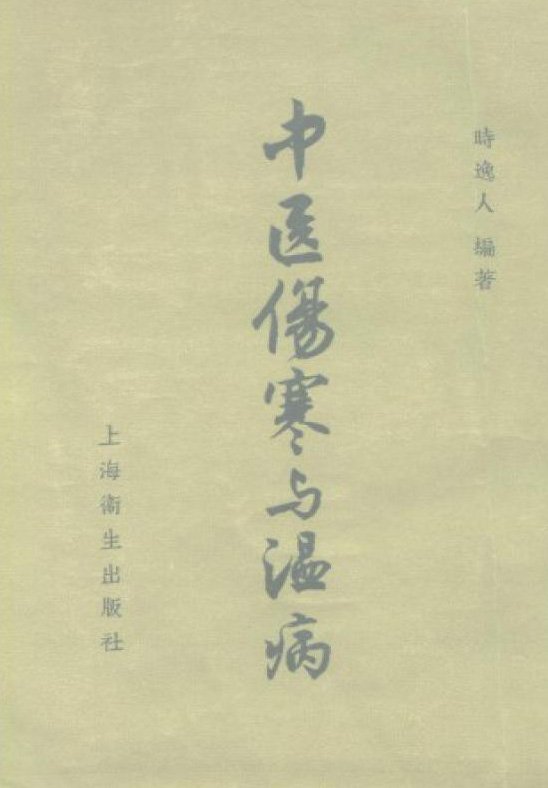 時逸人 編著
中医傷寒与温病
上海衛生出版社